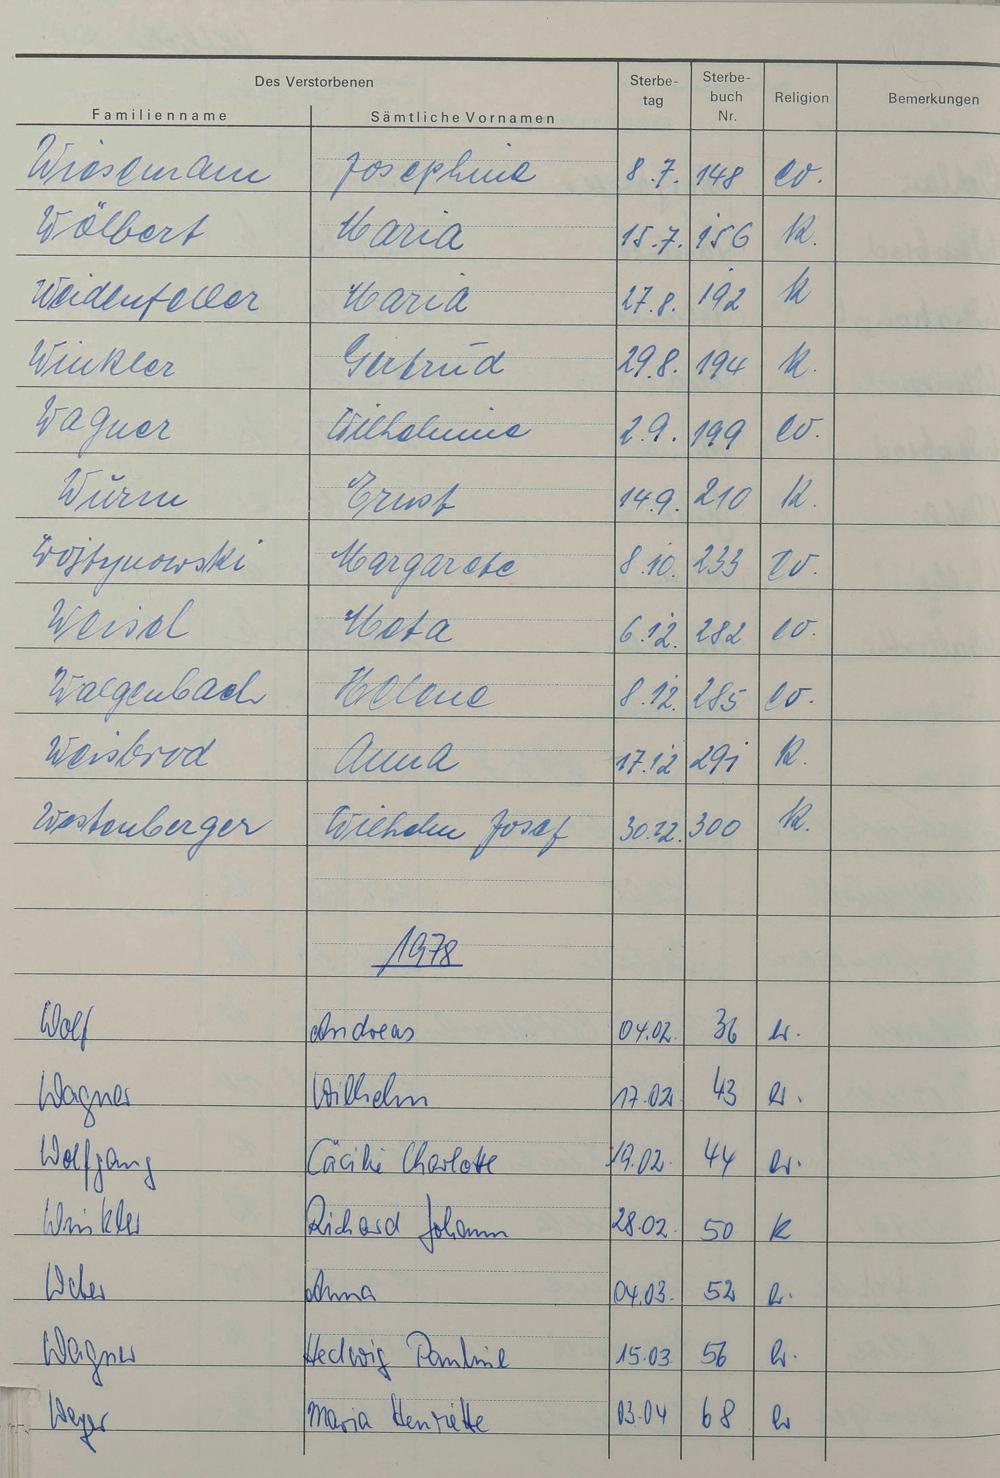 Des Verstorbenen Sterbe- Sterbe- Religion Bemerkungen
Familienname Sämtliche Vornamen tag buch
Nr.
Wiesemann Josephine 8.7. 148 ev.
Wölbert Maria 15.7. 156 k.
Weidenfeller Maria 27.8. 192 k
Winkler Gertrud 29.8. 194 k.
Wagner Wilhelmine 2.9. 199 ev.
Wurm Ernst 14.9. 210 k.
Wojtynowski Margarete 8.10. 233 ev.
Weisel Meta 6.12. 282 ev.
Walgenbach Helene 8.12. 285 ev.
Weisbrod Anna 17.12 291 k.
Westenberger Wilhelm Josef 30.12. 300 k.
1978
Wolf Andreas 04.02. 36 ev.
Wagner Wilhelm 17.02. 43 ev.
Wolfgang Cäcilie Charlotte 19.02. 44 ev.
Winkler Richard Johann 28.02. 50 k
Weber Anna 04.03. 52 ev.
Wagner Hedwig Pauline 15.03. 56 ev.
Weyer Maria Henriette 03.04 68 ev